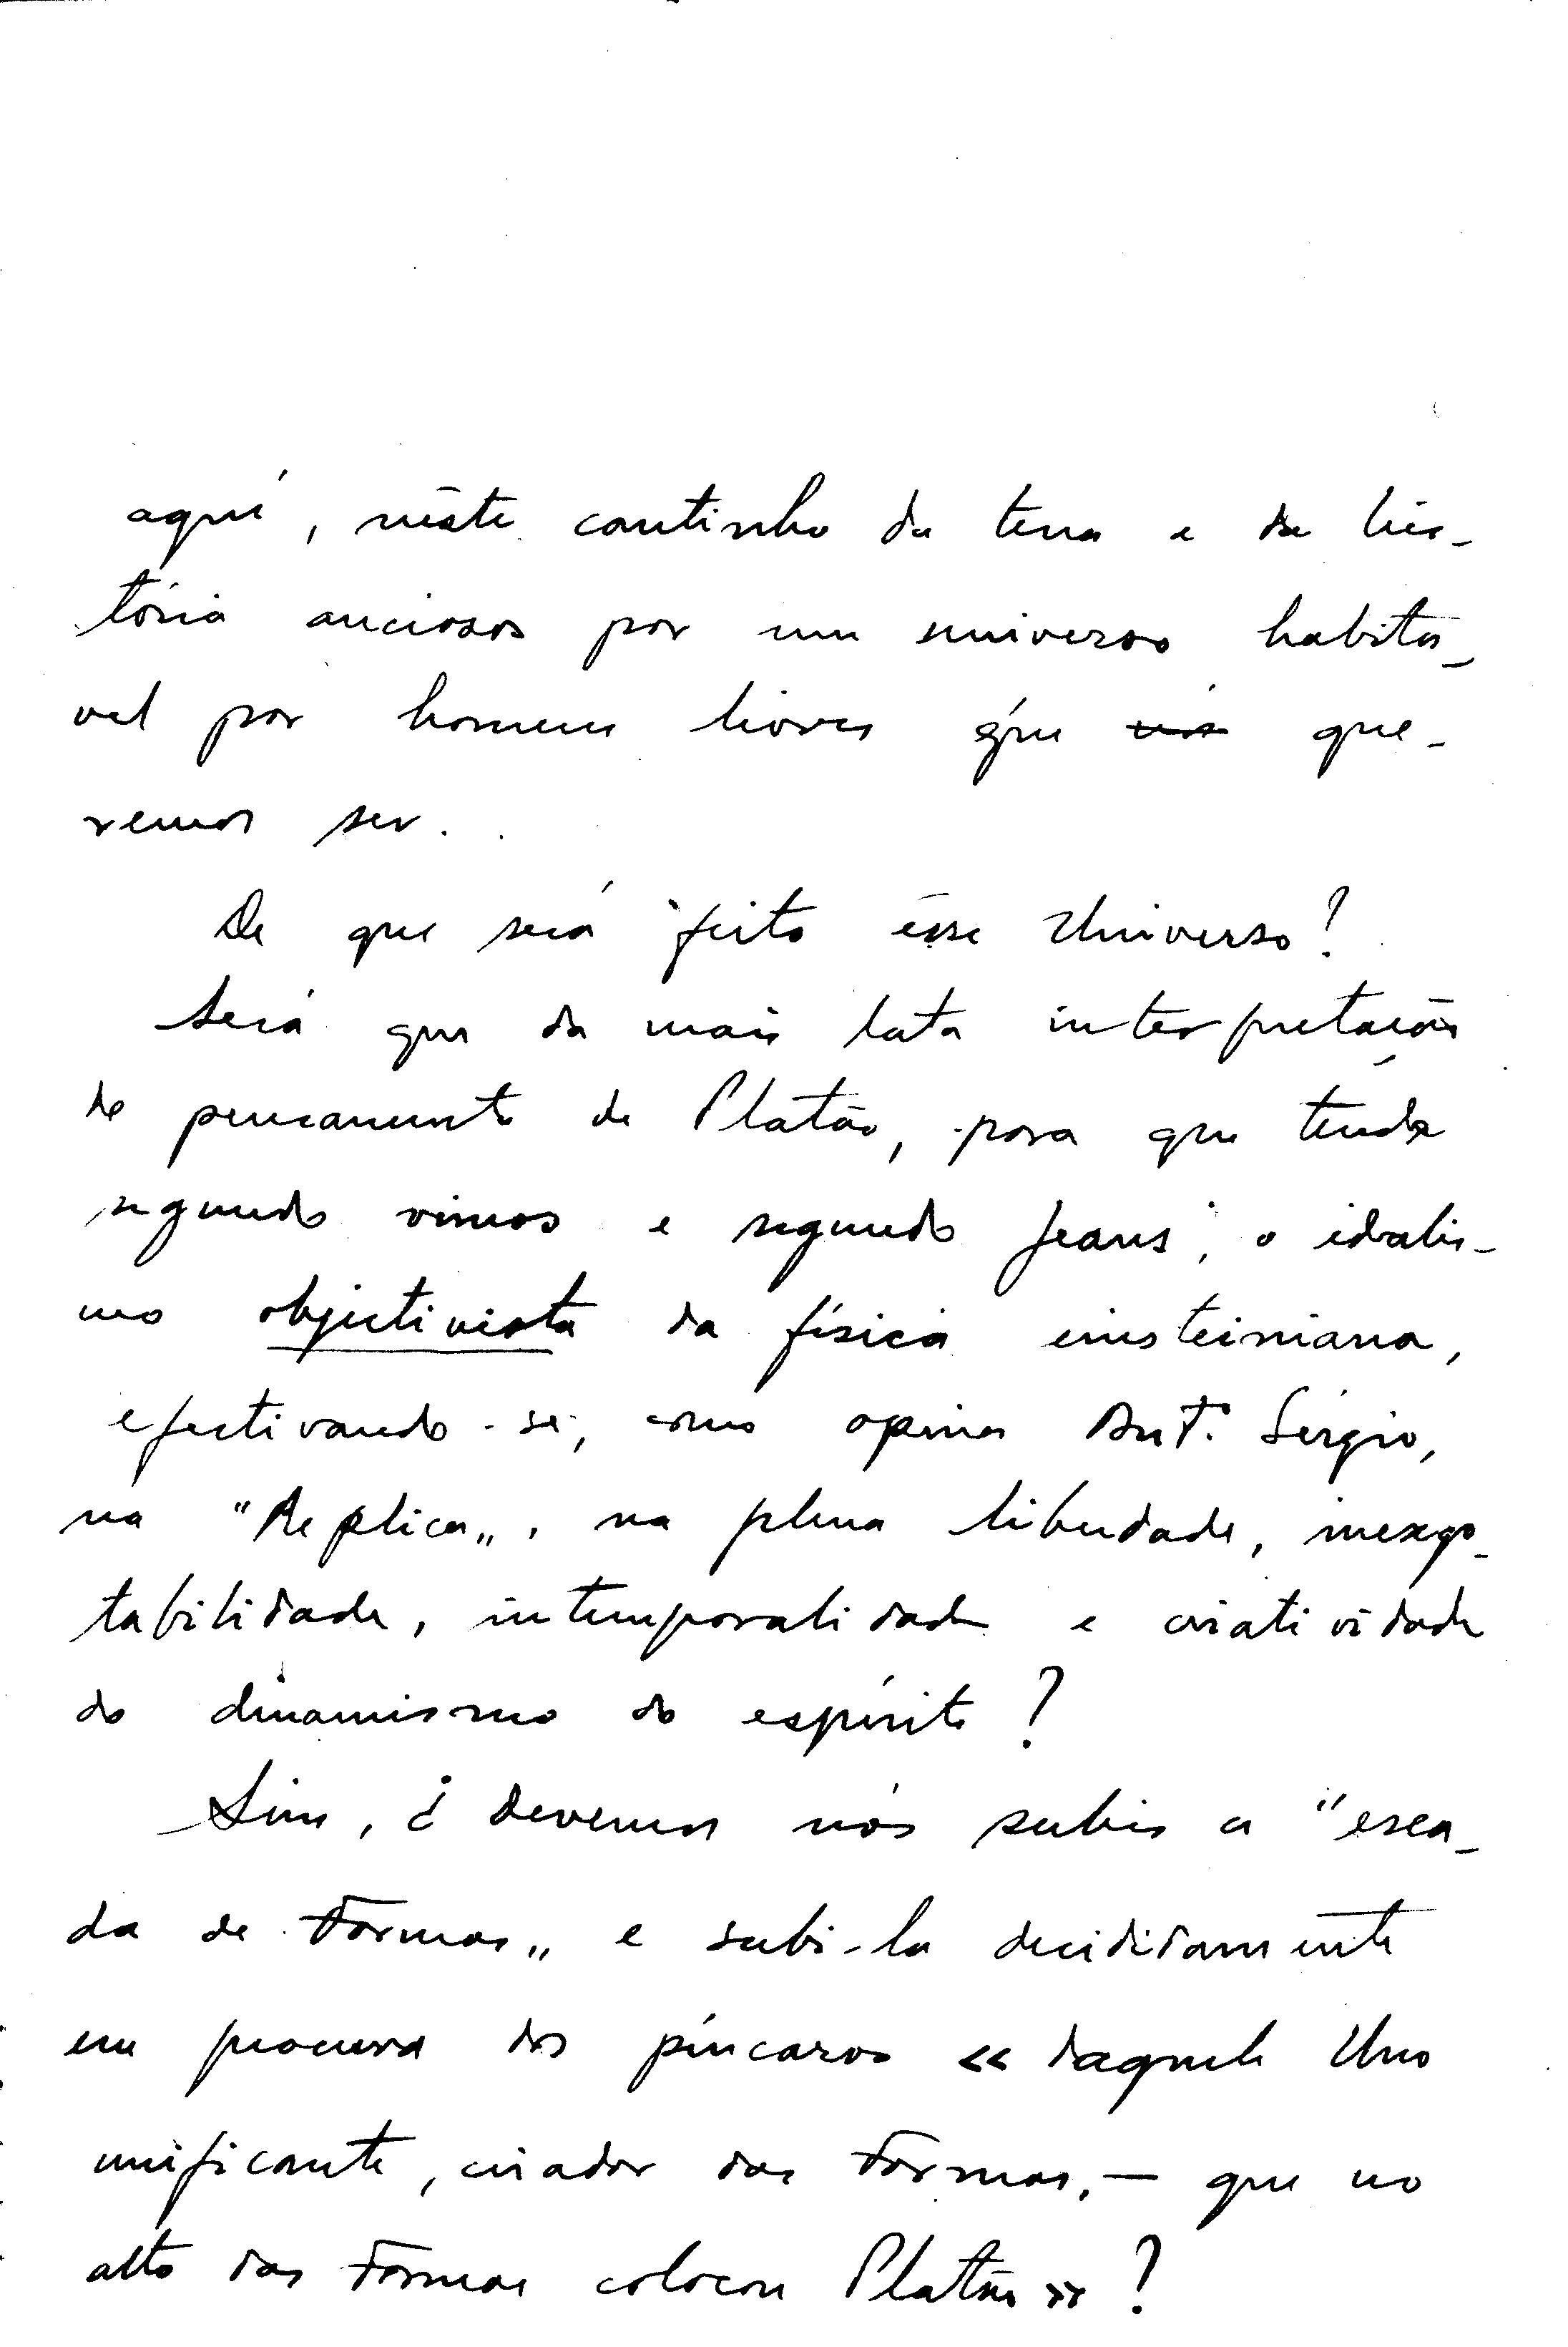 aquí, nêste cantinho da terra e da his-
tória anciosos por um universo habitá-
vel por homens livres que nós que-
remos ser.
De que será feito êsse Universo?
Será que da mais lata interpretação
do pensamento de Platão, para que tende
segundo vimos e segundo Jeans, o idealis-
mo objectivista da física einsteiniana,
efectivando-se, como opina Ant. Sérgio,
na "Replica„, na plena liberdade, inexgo-
tabilidade, intemporalidade e criatividade
do dinamismo do espírito?
Sim, ¿ devemos nós subir a "esca-
da de Formas„ e subi-la decididamente
em procura dos píncaros «daquele Uno
unificante, criador das Formas, — que no
alto das Formas colocou Platão»?